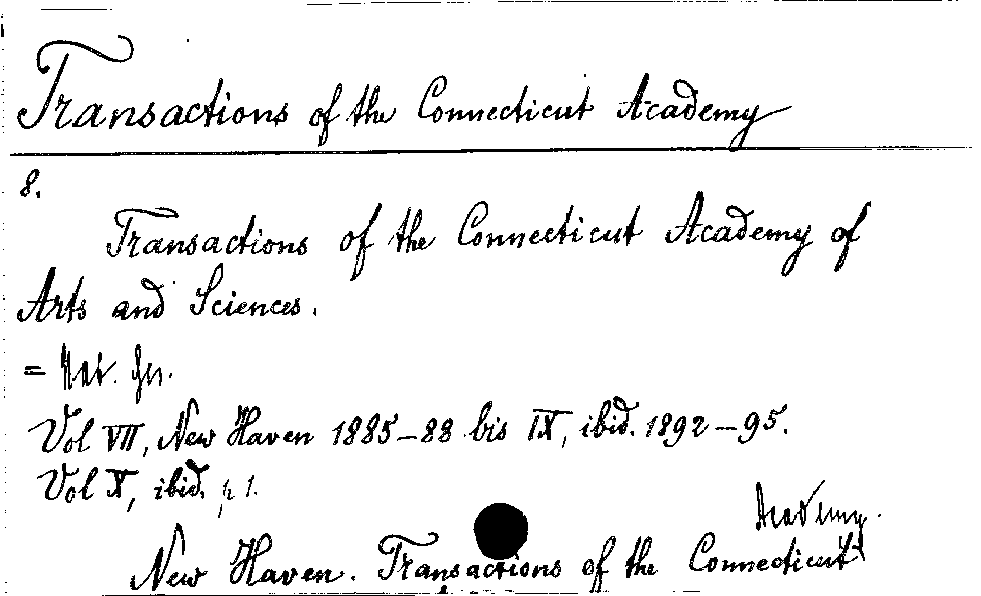 Transactions of the Connecticut Academy
8.
Transactions of the Connecticut Academy of
Arts and Sciences.
= Nat. Ges.
Vol VII, New Haven 1885-88 bis IX, ibid. 1892-95.
Vol X, ibid. p 1.
Academy.
New Haven. Transactions of the Connecticut